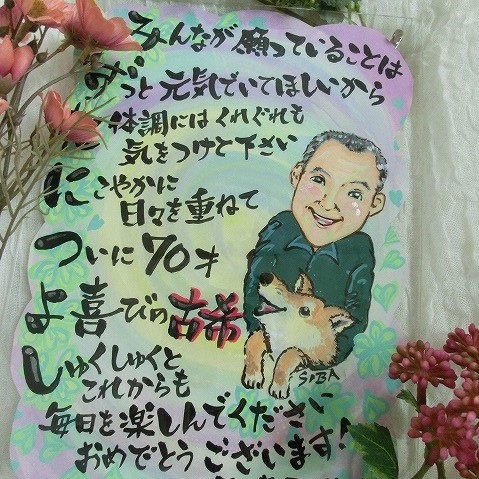 みんなが願っていることは
ずっと元気でいてほしいから
体調にはくれぐれも
気をつけて下さい
にこやかに
日々を重ねて
ついに70才
よ喜びの古希
しゅくしゅくと
これからも
毎日を楽しんでください
おめでとうございます!
SIBA